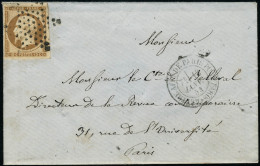 Monsieur
Monsieur le Cte de Belleval
Directeur de la Revue contemporaine
31, rue de l'Université
Paris